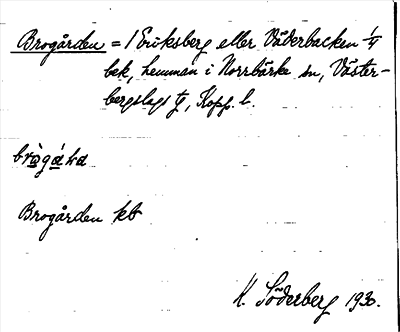 Brogården = / Eriksberg eller Väderbacken 1/4
bek, hemman i Norrbärke sn, Väster-
bergslags tg, Kopp. l.
Brogården kb
K. Söderberg 1930.